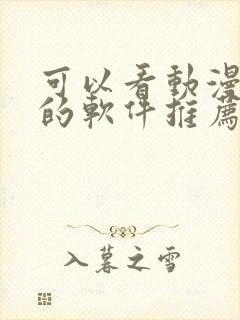 可以看動漫
的軟件推薦
入暮之雪